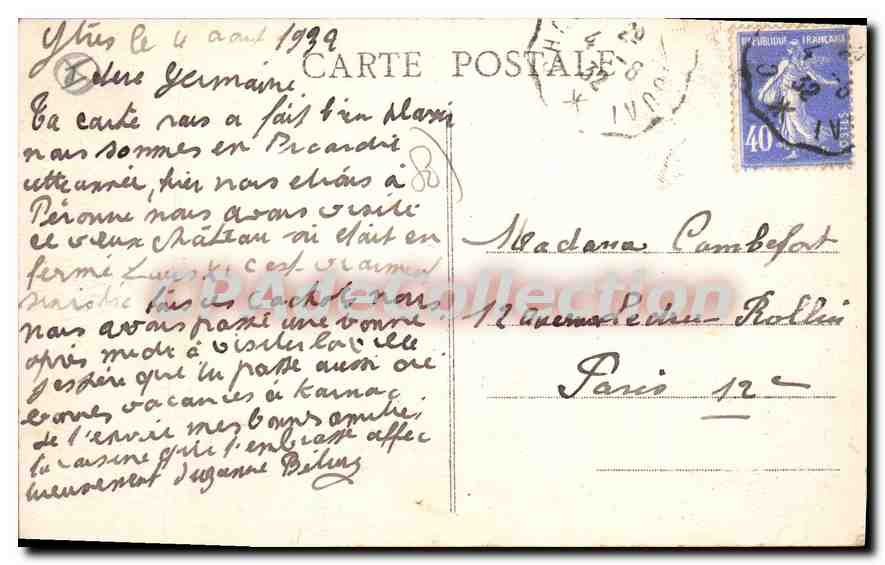 Ytres le 4 aout 1932
CARTE POSTALE
chere Germaine
Ta carte nous a fait bien plaisir
nous sommes en Picardie
cette année, hier nous etions à
Péronne nous avons visité
le vieux château où etait en
fermé Louis XI c'est vraiment
sinistre tous ces cachots nous
nous avons passé une bonne
après midi à visiter la ville
j'espère que tu passe aussi de
bonnes vacances à Karnac
de l'envoie mes bonnes amitiés
ta cousine qui t'embrasse affec
tueusement Suzanne
80
REPUBLIQUE FRANÇAISE
40c
POSTES
DOUAI
4-8
32
Madame Combefort
12 avenue Ledru Rollin
Paris 12e
CPAdeCollection.com